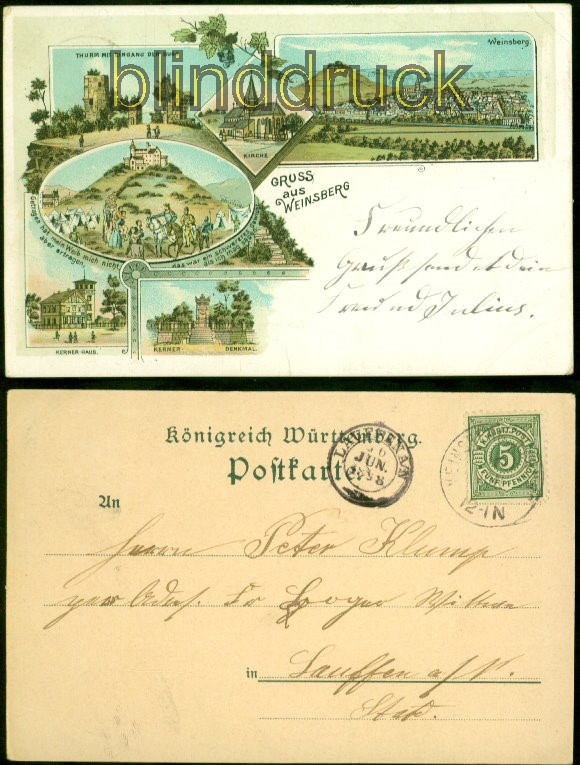 blinddruck
THURM MIT EINGANG DER BURG
KIRCHE
Weinsberg.
GRUSS
aus
WEINSBERG
Getragen hat mein Weib mich nicht
aber ertragen
das war ein schwereres
KERNER-HAUS.
KERNER-DENKMAL.
Freundlichen
Gruß sendet dein
Freund Julius.
Königreich Württemberg.
Postkarte
LAUFFEN A/N
JUN.
K. WÜRTT. POST
5
FÜNF PFENNIG
12-1N
An
Herrn Peter Klump
Wittwe
in Lauffen a/N.
Stadt.